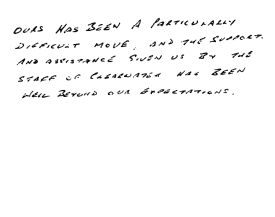 OURS HAS BEEN A PARTICULARLY
DIFFICULT MOVE, AND THE SUPPORT.
AND ASSISTANCE GIVEN US BY THE
STAFF OF CLEARWATER HAS BEEN
WELL BEYOND OUR EXPECTATIONS.